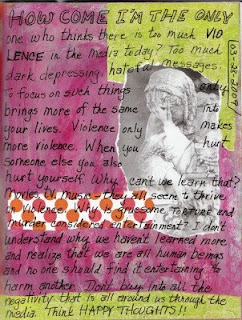 HOW COME I'M THE ONLY
one who thinks there is too much VIO
LENCE in the media today? Too much
dark, depressing, hateful messages.
To focus on such things only
brings more of the same into
your lives. Violence only makes
more violence. When you hurt
someone else you also
hurt yourself. Why can't we learn that?
Movies, TV, music - they all seem to thrive
on violence. Why is gruesome torture and
murder considered entertainment? I don't
understand why we haven't learned more
and realize that we are all human beings
and no one should find it entertaining to
harm another. Don't buy into all the
negativity that is all around us through the
media. Think HAPPY THOUGHTS!!